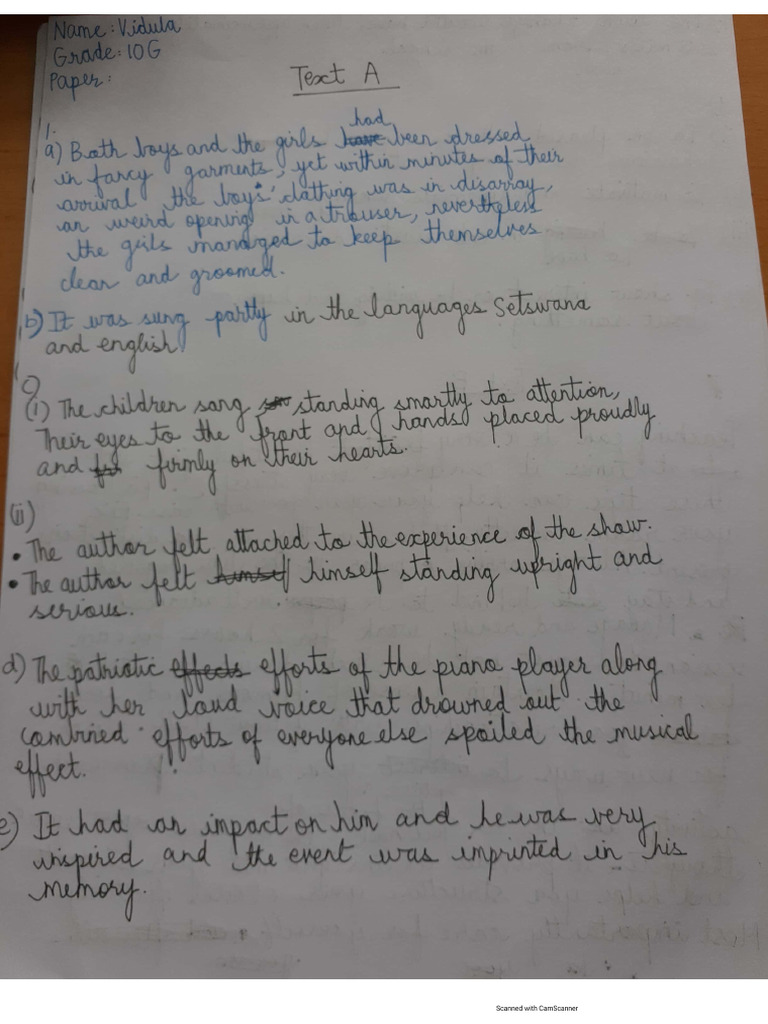 Name: Vidula
Grade: 10G
Paper:
Text A
1.
had
a) Both boys and the girls have been dressed
in fancy garments, yet within minutes of their
arrival the boys' clothing was in disarray,
an weird opening in a trouser, nevertheless
the girls managed to keep themselves
clean and groomed.
b) It was sung partly in the languages Setswana
and english.
c)
(i) The children sang standing smartly to attention,
Their eyes to the front and hands placed proudly
and firmly on their hearts.
(ii)
• The author felt attached to the experience of the show.
• The author felt himself himself standing upright and
serious.
d) The patriotic effects efforts of the piano player along
with her loud voice that drowned out the
combined efforts of everyone else spoiled the musical
effect.
e) It had an impact on him and he was very
inspired and the event was imprinted in his
memory.
Scanned with CamScanner